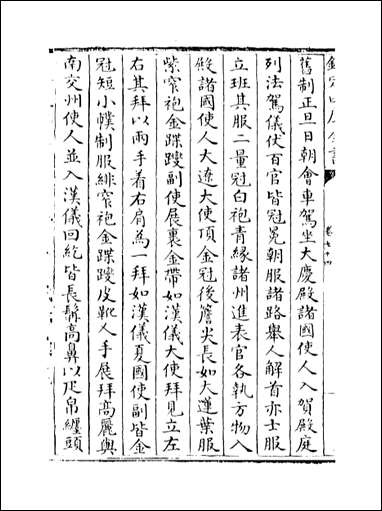 欽定四庫全書
卷七十四
舊制正旦日朝會車駕坐大慶殿諸國使人入賀殿庭
列法駕儀伏百官皆冠冕朝服諸路舉人解首亦士服
立班其服二量冠白袍青緣諸州進表官各執方物入
殿諸國使人大遼大使頂金冠後簷尖長如大蓮葉服
紫窄袍金蹀躞副使展裹金帶如漢儀大使拜見立左
右其拜以兩手着右肩為一拜如漢儀夏國使副皆金
冠短小幞制服緋窄袍金蹀躞皮靴人手展拜高麗與
南交州使人並入漢儀回紇皆長髯高鼻以疋帛纏頭